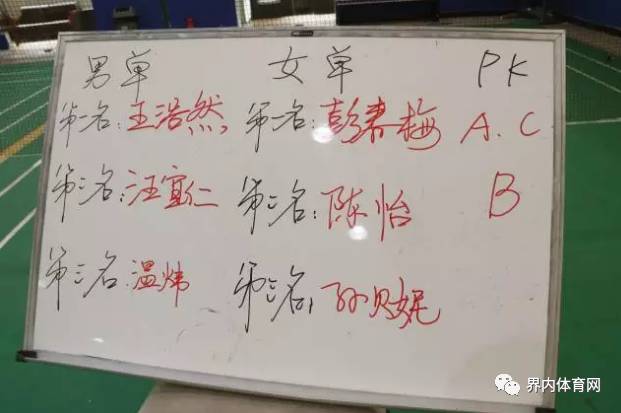 男单 女单 PK
第一名:王浩然 第一名:彭素梅 A.C
第二名:汪宜仁 第二名:陈怡 B
第三名:温炜 第三名:孙贝妮
界内体育网